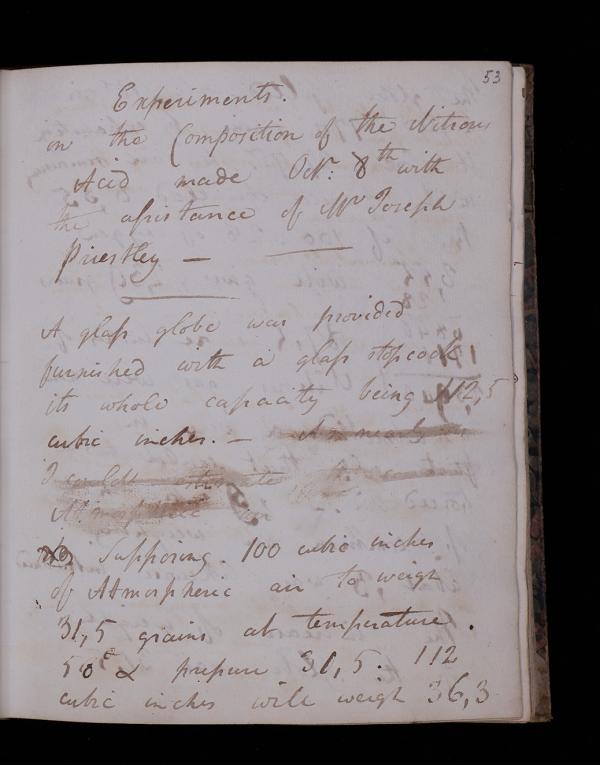 53
Experiments.
on the Composition of the Nitrous
Acid made Octr: 8th with
the assistance of Mr Joseph
Priestley —
A glass globe was provided
furnished with a glass stopcock
its whole capacity being 112,5
cubic inches. — As nearly as
I could estimate the
Atmospheric
Supposing. 100 cubic inches
of Atmospheric air to weigh
31,5 grains at temperature.
50° & pressure 31,5: 112
cubic inches will weigh 36,3